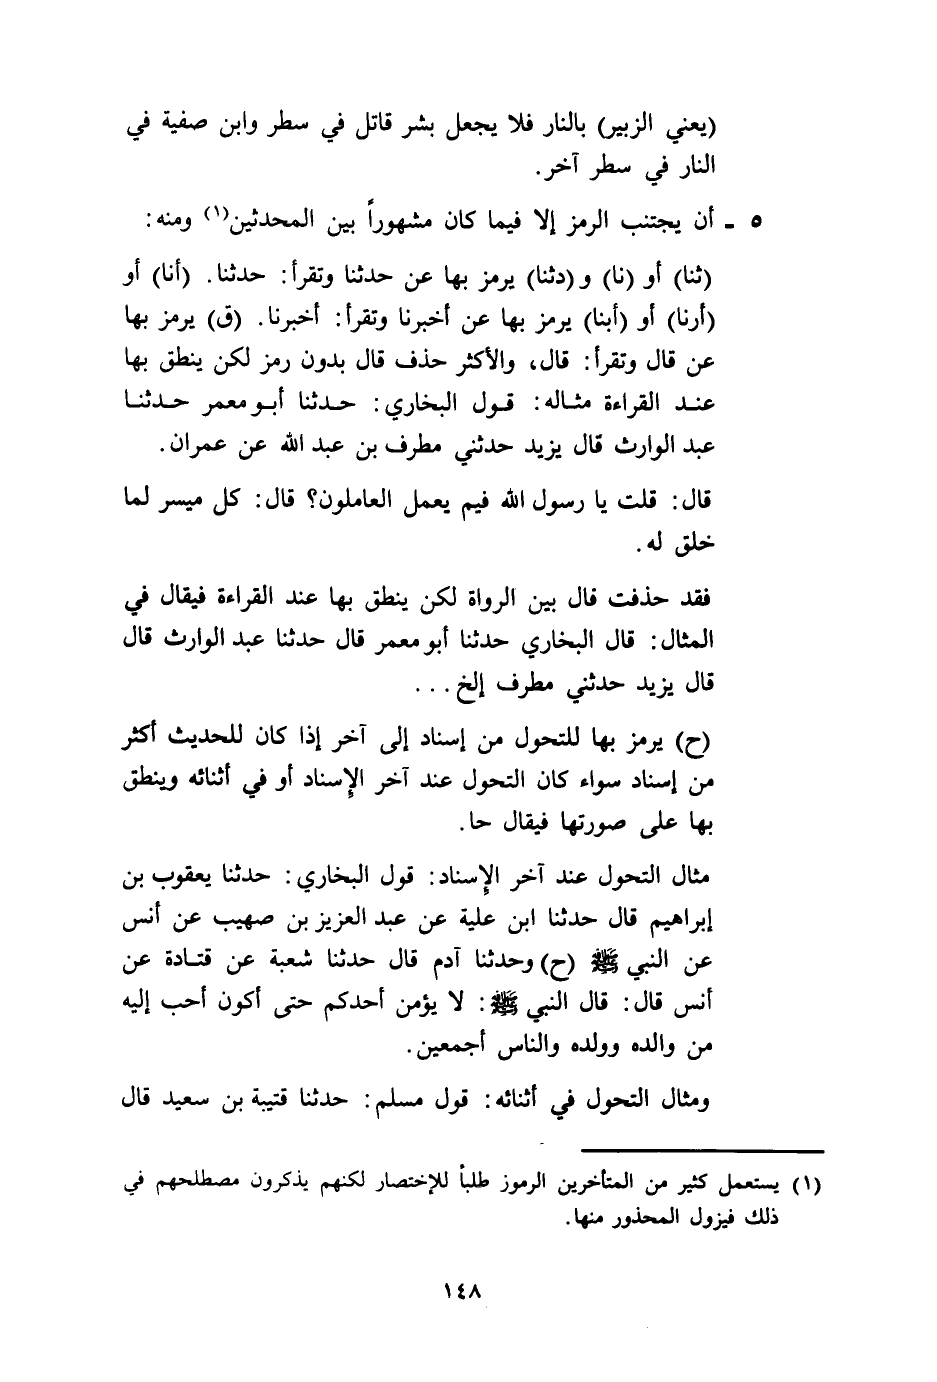 (يعني الزبير) بالنار فلا يجعل بشر قاتل في سطر وابن صفية في
النار في سطر آخر.
٥ - أن يجتنب الرمز إلا فيما كان مشهوراً بين المحدثين(١) ومنه:
(ثنا) أو (نا) و(دثنا) يرمز بها عن حدثنا وتقرأ: حدثنا. (أنا) أو
(أرنا) أو (أبنا) يرمز بها عن أخبرنا وتقرأ: أخبرنا. (ق) يرمز بها
عن قال وتقرأ: قال، والأكثر حذف قال بدون رمز لكن ينطق بها
عند القراءة مثاله: قول البخاري: حدثنا أبو معمر حدثنا
عبد الوارث قال يزيد حدثني مطرف بن عبد الله عن عمران.
قال: قلت يا رسول الله فيم يعمل العاملون؟ قال: كل ميسر لما
خلق له.
فقد حذفت قال بين الرواة لكن ينطق بها عند القراءة فيقال في
المثال: قال البخاري حدثنا أبو معمر قال حدثنا عبد الوارث قال
قال يزيد حدثني مطرف إلخ...
(ح) يرمز بها للتحول من إسناد إلى آخر إذا كان للحديث أكثر
من إسناد سواء كان التحول عند آخر الإسناد أو في أثنائه وينطق
بها على صورتها فيقال حا.
مثال التحول عند آخر الإسناد: قول البخاري: حدثنا يعقوب بن
إبراهيم قال حدثنا ابن علية عن عبد العزيز بن صهيب عن أنس
عن النبي ﷺ (ح) وحدثنا آدم قال حدثنا شعبة عن قتادة عن
أنس قال: قال النبي ﷺ: لا يؤمن أحدكم حتى أكون أحب إليه
من والده وولده والناس أجمعين.
ومثال التحول في أثنائه: قول مسلم: حدثنا قتيبة بن سعيد قال
(١) يستعمل كثير من المتأخرين الرموز طلباً للإختصار لكنهم يذكرون مصطلحهم في
ذلك فيزول المحذور منها.
١٤٨